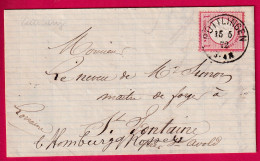 PÜTTLINGEN
15 5
72
3-4N
Monsieur
Le neveu de Mr Simon
maître de forge à
St Fontaine
Lorraine
L'Hombourg
St Avold